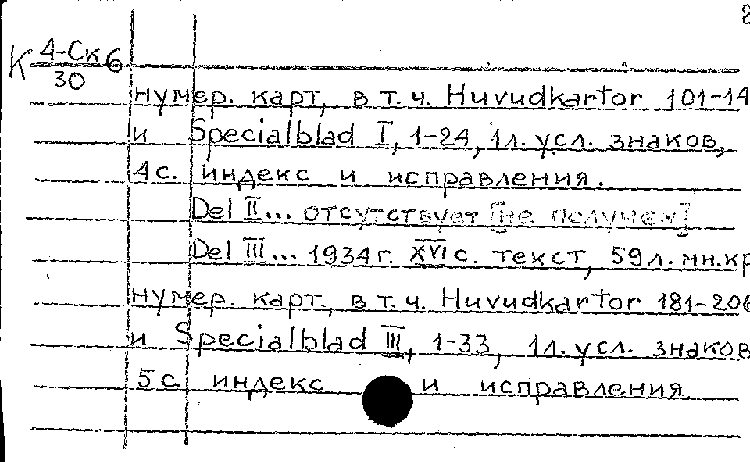 К 4-Ск6
30
нумер. карт, в т.ч. Huvudkartor 101-14
и Specialblad I, 1-24, 1л. усл. знаков,
4с. индекс и исправления.
Del II... отсутствует [не получен]
Del III... 1934г. XVI с. текст, 59л. мн.кр
нумер. карт, в т.ч. Huvudkartor 181-206
и Specialblad III, 1-33, 1л. усл. знаков
5с индекс и исправления.